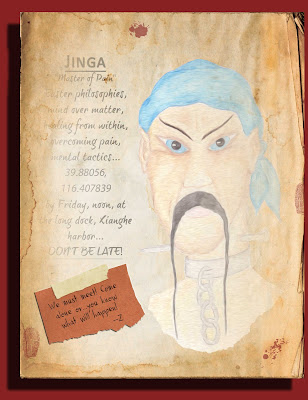 JINGA
"Master of Pain"
Easter philosophies,
mind over matter,
healing from within,
overcoming pain,
mental tactics...
39.88056,
116.407839
by Friday, noon, at
the long dock, Kianghe
harbor...
DON'T BE LATE!
We must meet! Come
alone or you know
what will happen!
-Z